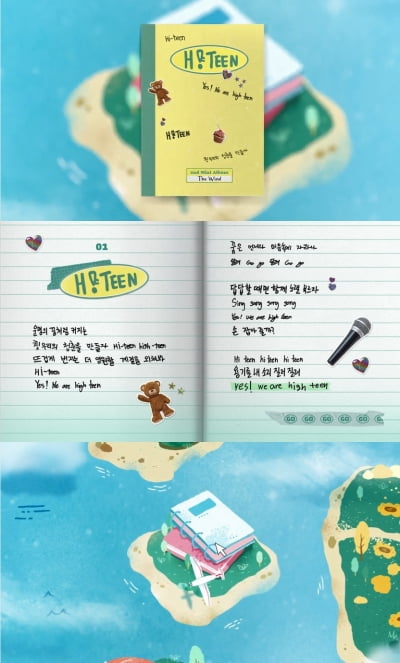 Hi-teen
Hi-TEEN
Yes! We are high teen
Hi-TEEN
2nd Mini Album
The Wind
01
Hi-TEEN
커지는
청춘을 만들자 Hi-teen high teen
뜨겁게 번지는 더 열렬할 계절을 외쳐봐
Hi-teen
Yes! We are high teen
꿈은 언제나 마음속에 자라나
Go go Go go
답답할 때면 함께 노랠 부르자
Sing song song song
Yes! We are high teen
손 잡아줄까?
Hi teen hi teen hi teen
용기를 내 소리 질러 질러
yes! we are high teen
GO GO GO GO GO